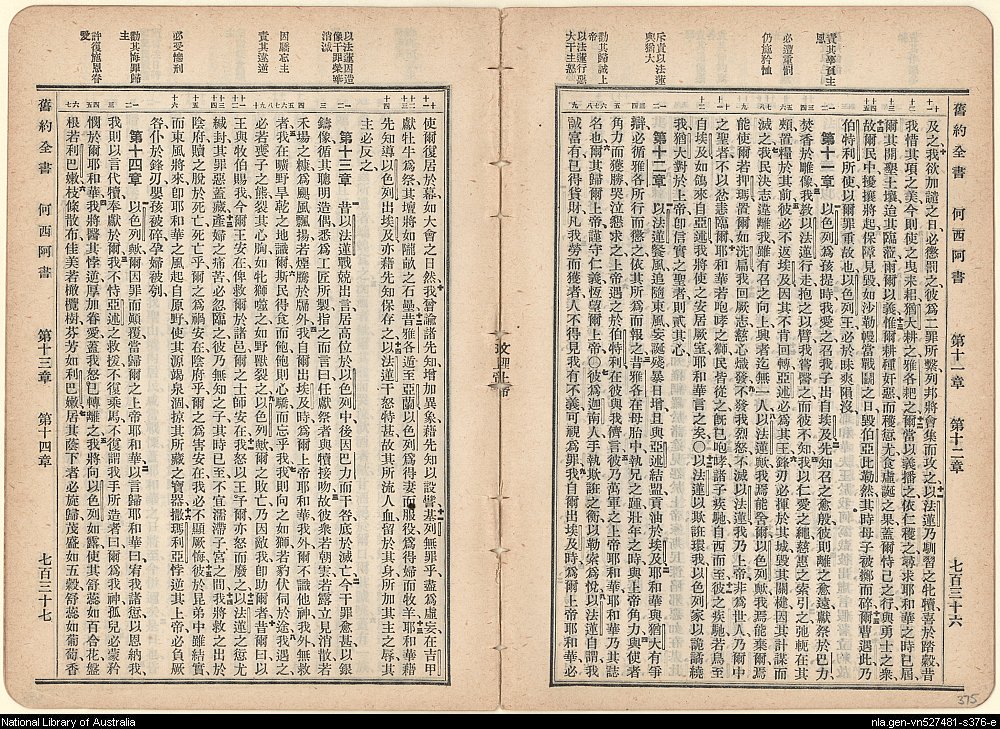 責其辜負主恩
必遭重罰
仍施矜恤
斥責以法蓮與猶大
勸其歸誠上帝
以法蓮行惡大干主怒
舊約全書 何西阿書 第十一章 第十二章 七百三十六
及之我欲加譴之日必懲罰之彼爲二罪所繫列邦將會集而攻之以法蓮乃馴習之牝犢喜於踏穀昔
我惜其項之美今則使之曳耒耜猶大耕之雅各耙之爾當以義播之依仁穫之尋求耶和華之時已屆
爾其開墾土壤迨其臨溢爾以義惟爾耕種奸惡而穫愆尤食虛誕之果蓋爾恃己之行與勇士之衆
故爾民中擾攘將起保障見毀如沙勒幔當戰鬬之日毀伯亞比勒然其時母子被擲而碎爾曹遇此乃
伯特利所使以爾罪重故也以色列王必於昧爽隕沒
第十一章 以色列爲孩提時我愛之召我子出自埃及先知召之愈殷彼則離之愈遠獻祭於巴力
焚香於雕像我教以法蓮行走抱之以臂我嘗醫之而彼不知我以仁愛之繩慈惠之索引之弛軛在其
頰置糧於其前彼必不返埃及因其不肯回轉亞述必爲其王鋒刃必揮於其城毀其關楗因其計謀而
滅之我民決志違離我雖有召之向上興者迄無一人以法蓮歟我焉能舍爾以色列歟我焉能棄爾焉
能使爾若押瑪置爾如洗扁我回厥志慈心熾發不發我烈怒不滅以法蓮我乃上帝非爲世人乃爾中
之聖者不以忿恚臨爾耶和華若咆哮之獅民皆從之旣已咆哮諸子疾馳自西而至彼之疾馳若鳥至
自埃及如鴿來自亞述我將使之安居厥室耶和華言之矣○以法蓮以欺誑環我以色列家以詭譎繞
我猶大對於上帝卽信實之聖者則貳其心
第十二章 以法蓮餐風追隨東風妄誕殘暴日增且與亞述結盟貢油於埃及耶和華與猶大有爭
辯必循雅各所行而懲之依其所爲而報之昔雅各在母胎中執兄之踵壯年之時與上帝角力與使者
角力而獲勝哭泣懇求之上帝遇之於伯特利在彼與我儕言彼乃萬軍之上帝耶和華耶和華乃其誌
名也爾其歸爾上帝謹守仁義恆望爾上帝○彼爲迦南人手執欺誑之衡以勒索爲悅以法蓮自謂我
誠富有已得貨財凡我勞而獲者人不得見我有不義可視爲罪我自爾出埃及時爲爾上帝耶和華必
文理和
以法蓮因造像干罪榮華消滅
因驕忘主
責其違逆
必受慘刑
勸其悔罪歸主
許復施恩眷愛
使爾復居於幕如大會之日然我曾諭諸先知增加異象藉先知以設譬基列無罪乎盡爲虛妄在吉甲
獻牡牛爲祭其壇將如隴畝之石壘昔雅各遁至亞蘭以色列爲得妻而服役爲得婦而牧羊耶和華藉
先知導以色列出埃及亦藉先知保存之以法蓮干怒特甚故其所流人血留於其身所加其主之辱其
主必反之
第十三章 昔以法蓮戰兢出言居高位於以色列中後因巴力而干咎厥於滅亡今干罪愈甚以銀
鑄像循其聰明造偶悉爲工匠所製指之而言曰任獻祭者與犢接吻故彼衆若朝雲若露立見消散若
禾場之糠爲颶風飄揚若煙騰於牖外我自爾出埃及時爲爾上帝耶和華我外爾不識他神我外無救
者我在曠野旱乾之地識爾斯民得食而飽飽則心驕而忘乎我故我則向之如獅若豹伏伺於途我遇之
必若喪子之熊裂其心胸如牝獅噬之如野獸裂之以色列歟爾之敗亡乃因敵我卽助爾者昔爾曰以
王與牧伯賜我今爾王安在俾救爾於諸邑爾之士師安在我怒以王予爾亦怒而廢之以法蓮之愆尤
緘封其罪惡蓋藏產婦之痛苦必忽臨之彼乃無知之子其時已至不宜濡滯於子宮之口我將救之出於
陰府贖之脫於死亡死亡乎爾之爲禍安在陰府乎爾之爲害安在我必不顯厥悔彼於昆弟中雖結實
而東風將來卽耶和華之風起自原野使其源竭泉涸掠其所藏之寶器撒瑪利亞悖逆其上帝必負厥
咎仆於鋒刃嬰孩被碎孕婦被剖
第十四章 以色列歟爾因罪而顛覆當歸爾之上帝耶和華以言歸耶和華曰宥我諸愆以恩納我
我則以言代犢奉獻於爾我不恃亞述之救援不復乘馬不復謂我手所造者曰爾爲我神孤兒必蒙矜
憫於爾耶和華曰我將醫其悖逆厚加眷愛蓋我怒已轉離之我將向以色列如露使其舒蕊如百合花盤
根若利巴嫩枝條散布佳美若橄欖樹芬芳如利巴嫩居其蔭下者必旋歸茂盛如五穀舒蕊如葡萄香
舊約全書 何西阿書 第十三章 第十四章 七百三十七
375
National Library of Australia
nla.gen-vn527481-s376-e